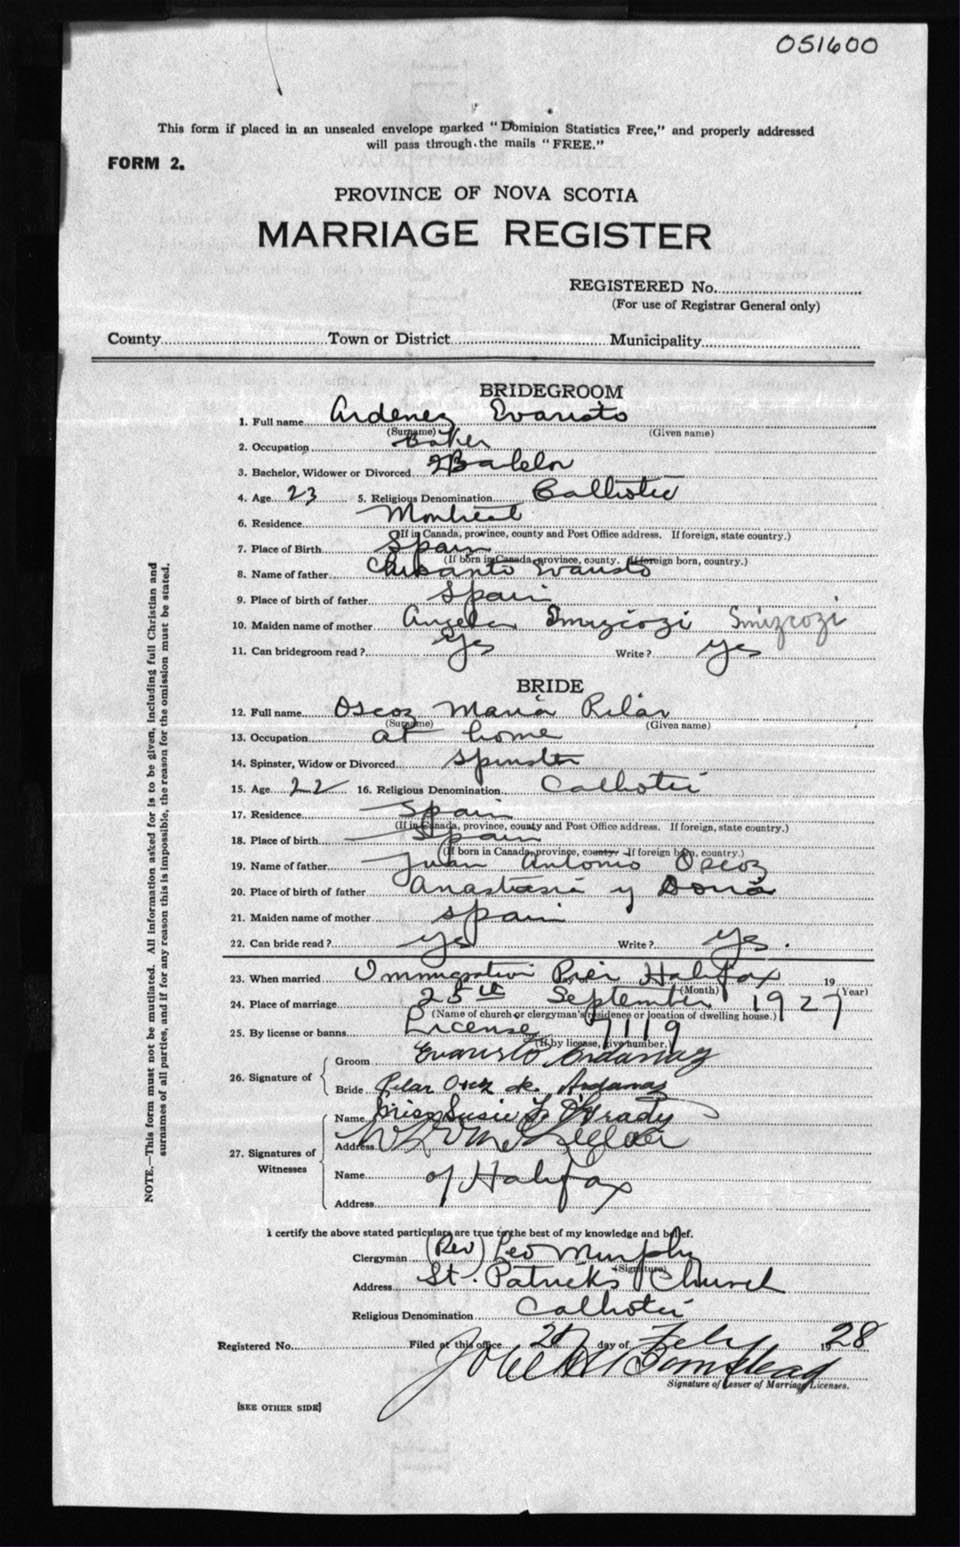 051600
This form if placed in an unsealed envelope marked "Dominion Statistics Free," and properly addressed
will pass through the mails "FREE."
FORM 2.
PROVINCE OF NOVA SCOTIA
MARRIAGE REGISTER
REGISTERED No.
(For use of Registrar General only)
County Town or District Municipality
BRIDEGROOM
1. Full name Ardenez Evaristo
(Surname) (Given name)
2. Occupation Baker
3. Bachelor, Widower or Divorced
4. Age 23 5. Religious Denomination Catholic
6. Residence Montreal
(If in Canada, province, county and Post Office address. If foreign, state country.)
7. Place of Birth Spain
(If born in Canada, province, county. If foreign born, country.)
8. Name of father Evaristo
9. Place of birth of father Spain
10. Maiden name of mother Angela Imizcozi Imizcozi
11. Can bridegroom read? Yes Write? yes
BRIDE
12. Full name Oscoz Maria Pilar
(Surname) (Given name)
13. Occupation at home
14. Spinster, Widow or Divorced Spinster
15. Age 22 16. Religious Denomination Catholic
17. Residence Spain
(If in Canada, province, county and Post Office address. If foreign, state country.)
18. Place of birth Spain
(If born in Canada, province, county If foreign born, country.)
19. Name of father Juan Antonio Oscoz
20. Place of birth of father Anastasia y
21. Maiden name of mother Spain
22. Can bride read? yes Write? yes.
23. When married Immigration Pier Halifax 19
(Month) (Year)
24. Place of marriage 25th September 1927
(Name of church or clergyman's residence or location of dwelling house.)
25. By license or banns License 7119
(If by license, give number.)
26. Signature of
Groom Evaristo Ardanaz
Bride Pilar Oscoz de Ardanaz
27. Signatures of Witnesses
Name Miss Susie O'Grady
Address
Name of Halifax
Address
I certify the above stated particulars are true to the best of my knowledge and belief.
Clergyman (Rev) Leo Murphy
(Signature)
Address St. Patricks Church
Religious Denomination Catholic
Registered No. Filed at this office day of Feby 1928
Signature of Issuer of Marriage Licenses.
[SEE OTHER SIDE]
NOTE.—This form must not be mutilated. All information asked for is to be given, including full Christian and
surnames of all parties, and if for any reason this is impossible, the reason for the omission must be stated.